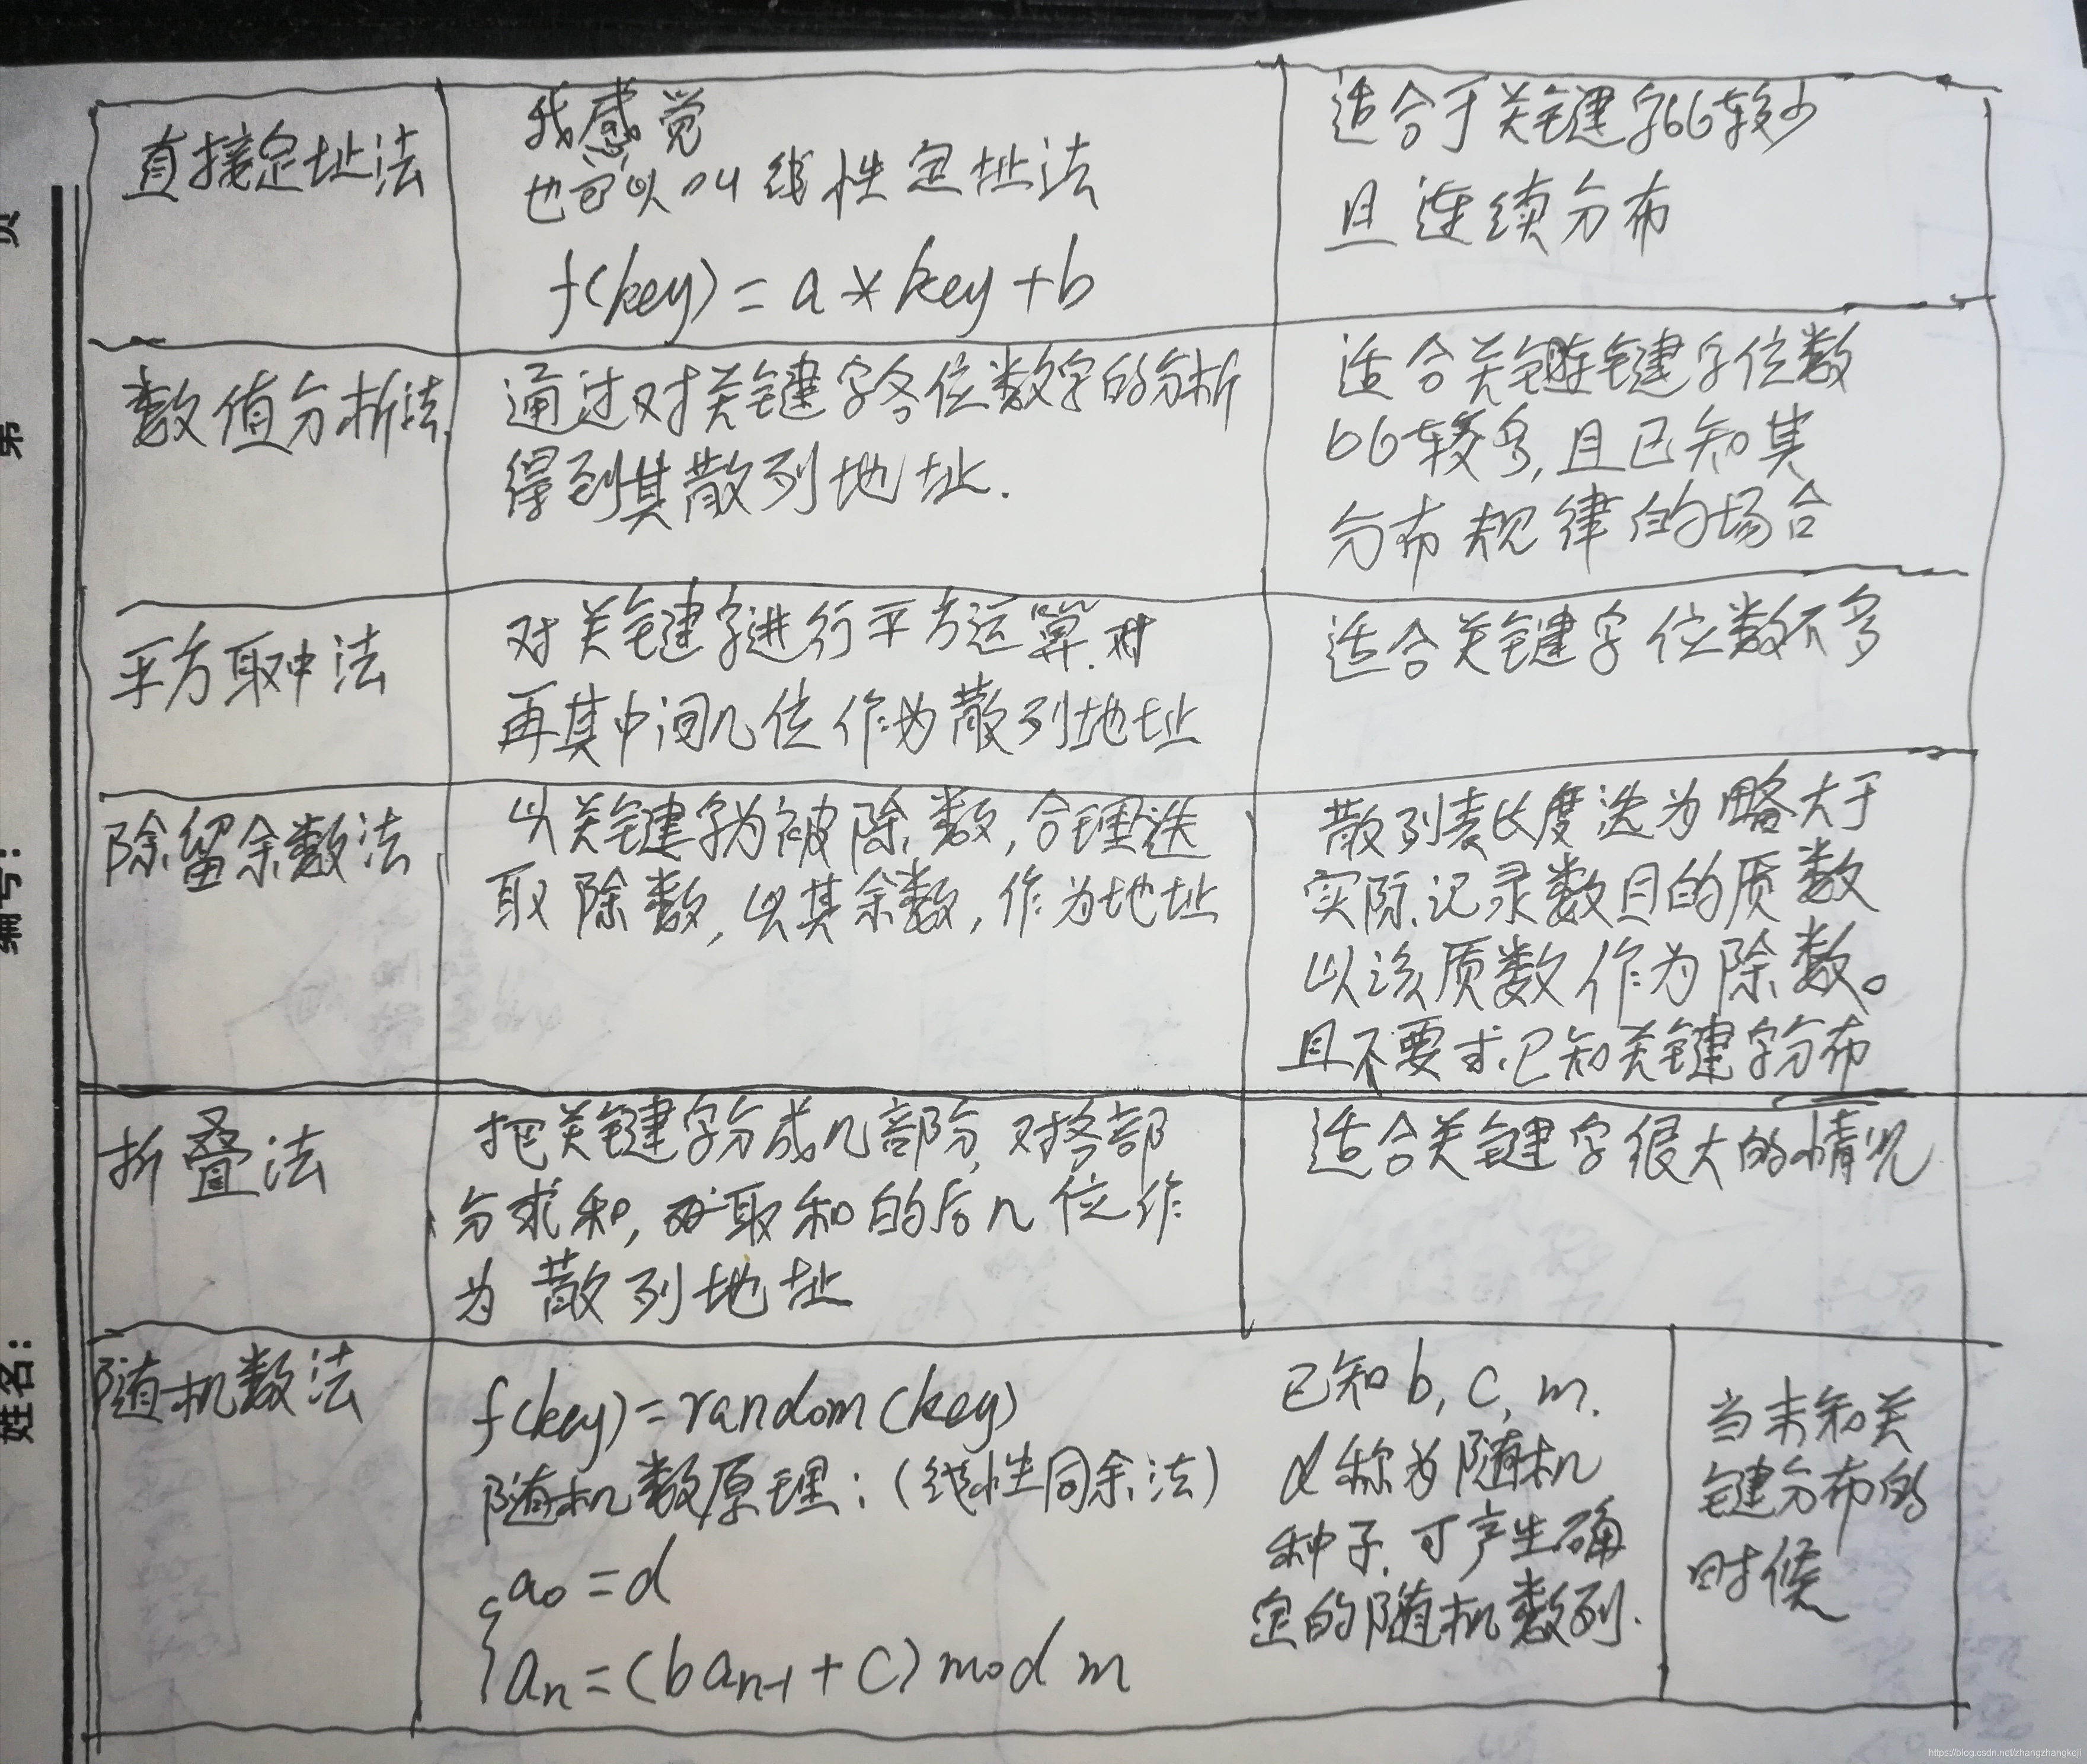 直接定址法
我感觉
也可以叫线性定址法
f(key) = a * key + b
适合于关键字比较少
且连续分布
数值分析法
通过对关键字各位数字的分析
得到其散列地址.
适合关键字位数
比较多,且已知其
分布规律的场合
平方取中法
对关键字进行平方运算.对
再其中间几位作为散列地址
适合关键字位数不多
除留余数法
以关键字为被除数,合理选
取除数,以其余数,作为地址
散列表长度选为略大于
实际记录数目的质数
以该质数作为除数。
且不要求已知关键字分布
折叠法
把关键字分成几部分,对各部
分求和,取和的后几位作
为散列地址
适合关键字很大的情况
随机数法
f(key) = random(key)
随机数原理:(线性同余法)
a₀ = d
aₙ = (b aₙ₋₁ + c) mod m
已知 b, c, m.
d 称为随机
种子.可产生确
定的随机数列.
当未知关
键分布的
时候
页
第
编号:
姓名:
https://blog.csdn.net/zhangzhangkeji